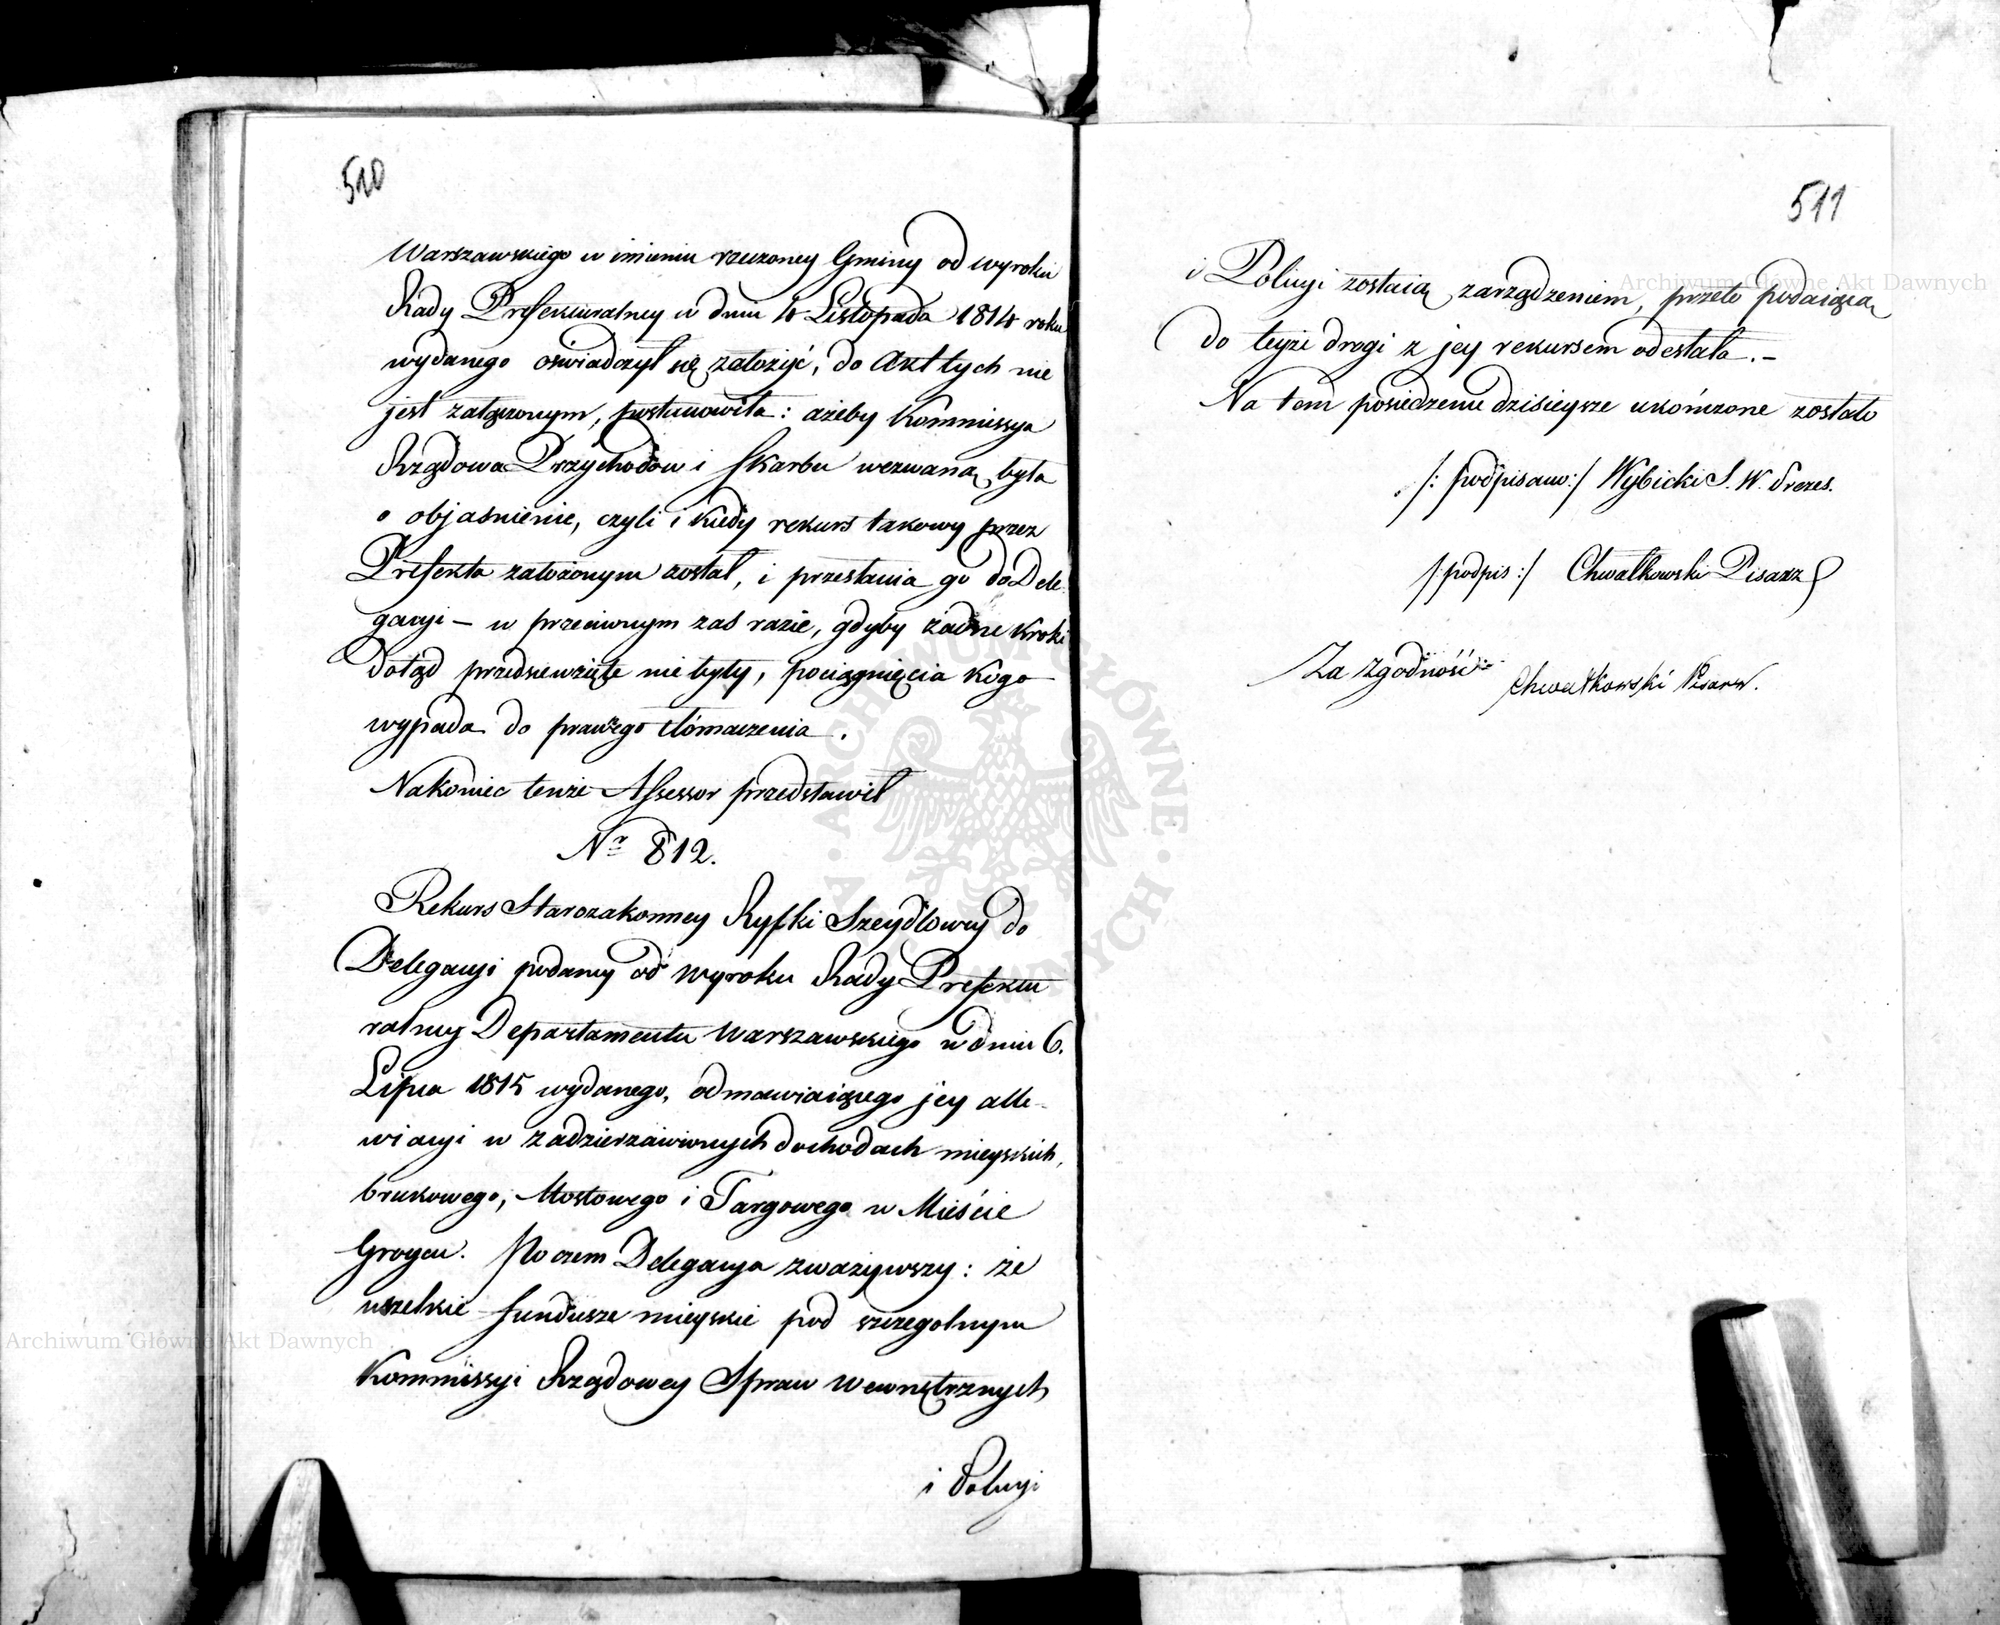 510
Warszawskiego w imieniu rzeczoney Gminy od wyroku
Rady Prefekturalney w dniu 4 Listopada 1814 roku
wydanego oświadczył się założyć, do Akt tych nie
jest załączonym, postanowiła: ażeby Kommissya
Rządowa Przychodów i Skarbu wezwaną była
o objaśnienie, czyli i kiedy rekurs takowy przez
Prefekta założonym został, i przesłania go do Dele-
gacyi – w przeciwnym zaś razie, gdyby żadne kroki
dotąd przedsiewzięte nie były, pociągnięcia kogo
wypada do prawnego tłómaczenia.
Nakoniec tenże Assessor przedstawił
Nr 812.
Rekurs Starozakonney Ryfki Szeydlowey do
Delegacyi podany od wyroku Rady Prefektu
ralney Departamentu Warszawskiego w dniu 6.
Lipca 1815 wydanego, odmawiaiącego jey alle-
wiacyi w zadzierzawionych dochodach mieyskich,
brukowego, Mostowego i Targowego w Mieście
Groycu. Po czem Delegacya zważywszy: że
wszelkie fundusze mieyskie pod szczegolnym
Kommissyi Rządowey Spraw Wewnętrznych
i Policyi
511
i Policyi zostaią zarządzeniem, przeto podaiącą
do teyże drogi z jey rekursem odesłała. –
Na tem posiedzenie dzisieysze ukończone zostało
/: podpisano :/ Wybicki S. W. Prezes.
/: podpis :/ Chwałkowski Pisarz
Za zgodność
Chwałkowski Pisarz.
Archiwum Główne Akt Dawnych
Archiwum Główne Akt Dawnych